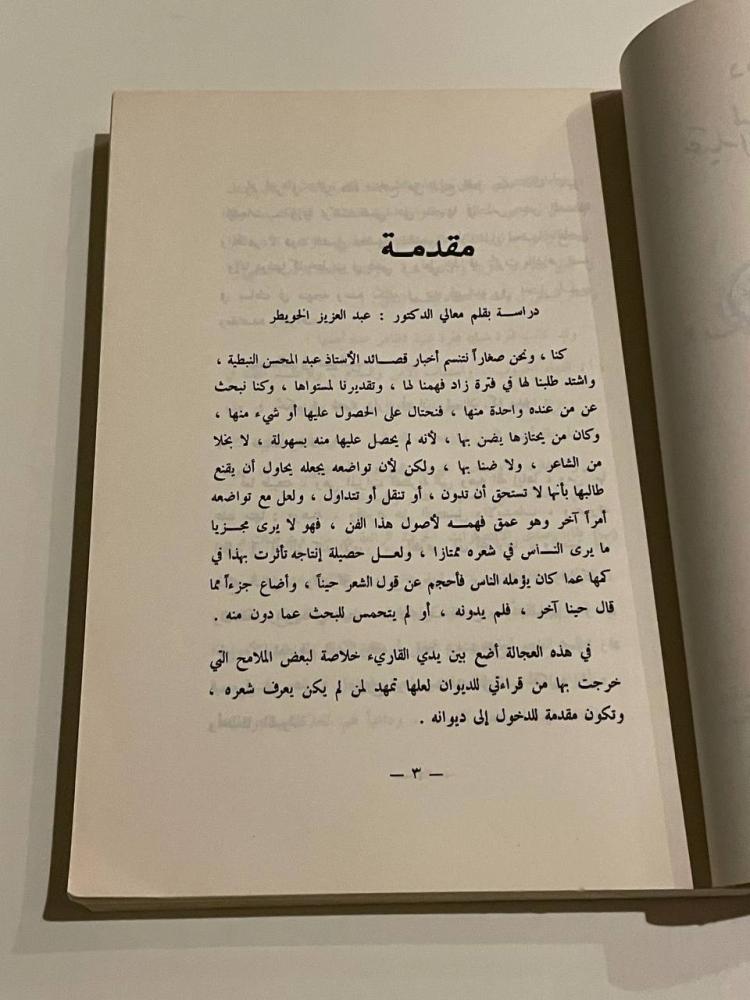 مقدمة
دراسة بقلم معالي الدكتور : عبد العزيز الخويطر
كنا ، ونحن صغاراً نتنسم أخبار قصائد الأستاذ عبد المحسن النبطية ،
واشتد طلبنا لها في فترة زاد فهمنا لها ، وتقديرنا لمستواها ، وكنا نبحث
عن من عنده واحدة منها ، فنحتال على الحصول عليها أو شيء منها ،
وكان من يحتازها يضن بها ، لأنه لم يحصل عليها منه بسهولة ، لا بخلا
من الشاعر ، ولا ضنا بها ، ولكن لأن تواضعه يجعله يحاول أن يقنع
طالبها بأنها لا تستحق أن تدون ، أو تنقل أو تتداول ، ولعل مع تواضعه
أمراً آخر وهو عمق فهمه لأصول هذا الفن ، فهو لا يرى مجزيا
ما يرى الناس في شعره ممتازا ، ولعل حصيلة إنتاجه تأثرت بهذا في
كمها عما كان يؤمله الناس فأحجم عن قول الشعر حيناً ، وأضاع جزءاً مما
قال حينا آخر ، فلم يدونه ، أو لم يتحمس للبحث عما دون منه .
في هذه العجالة أضع بين يدي القاريء خلاصة لبعض الملامح التي
خرجت بها من قراءتي للديوان لعلها تمهد لمن لم يكن يعرف شعره ،
وتكون مقدمة للدخول إلى ديوانه .
— ٣ —